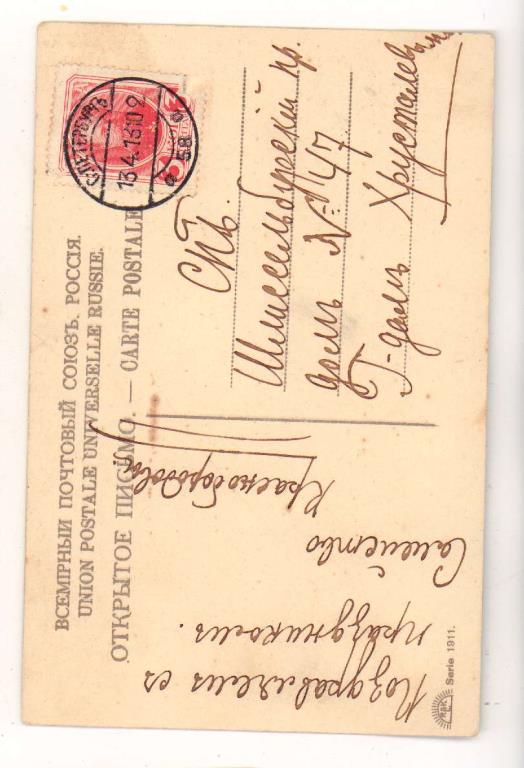 ВСЕМІРНЫЙ ПОЧТОВЫЙ СОЮЗЪ. РОССІЯ.
UNION POSTALE UNIVERSELLE RUSSIE.
ОТКРЫТОЕ ПИСЬМО. — CARTE POSTALE
С.ПЕТЕРБУРГЪ
13.4.13 10 9
58
СПБ.
Шлиссельбургскій пр.
домъ № 147
Г-дамъ Хрусталевымъ
Поздравляемъ съ
праздникомъ.
Семейство
Краснобородова
Serie 1911.